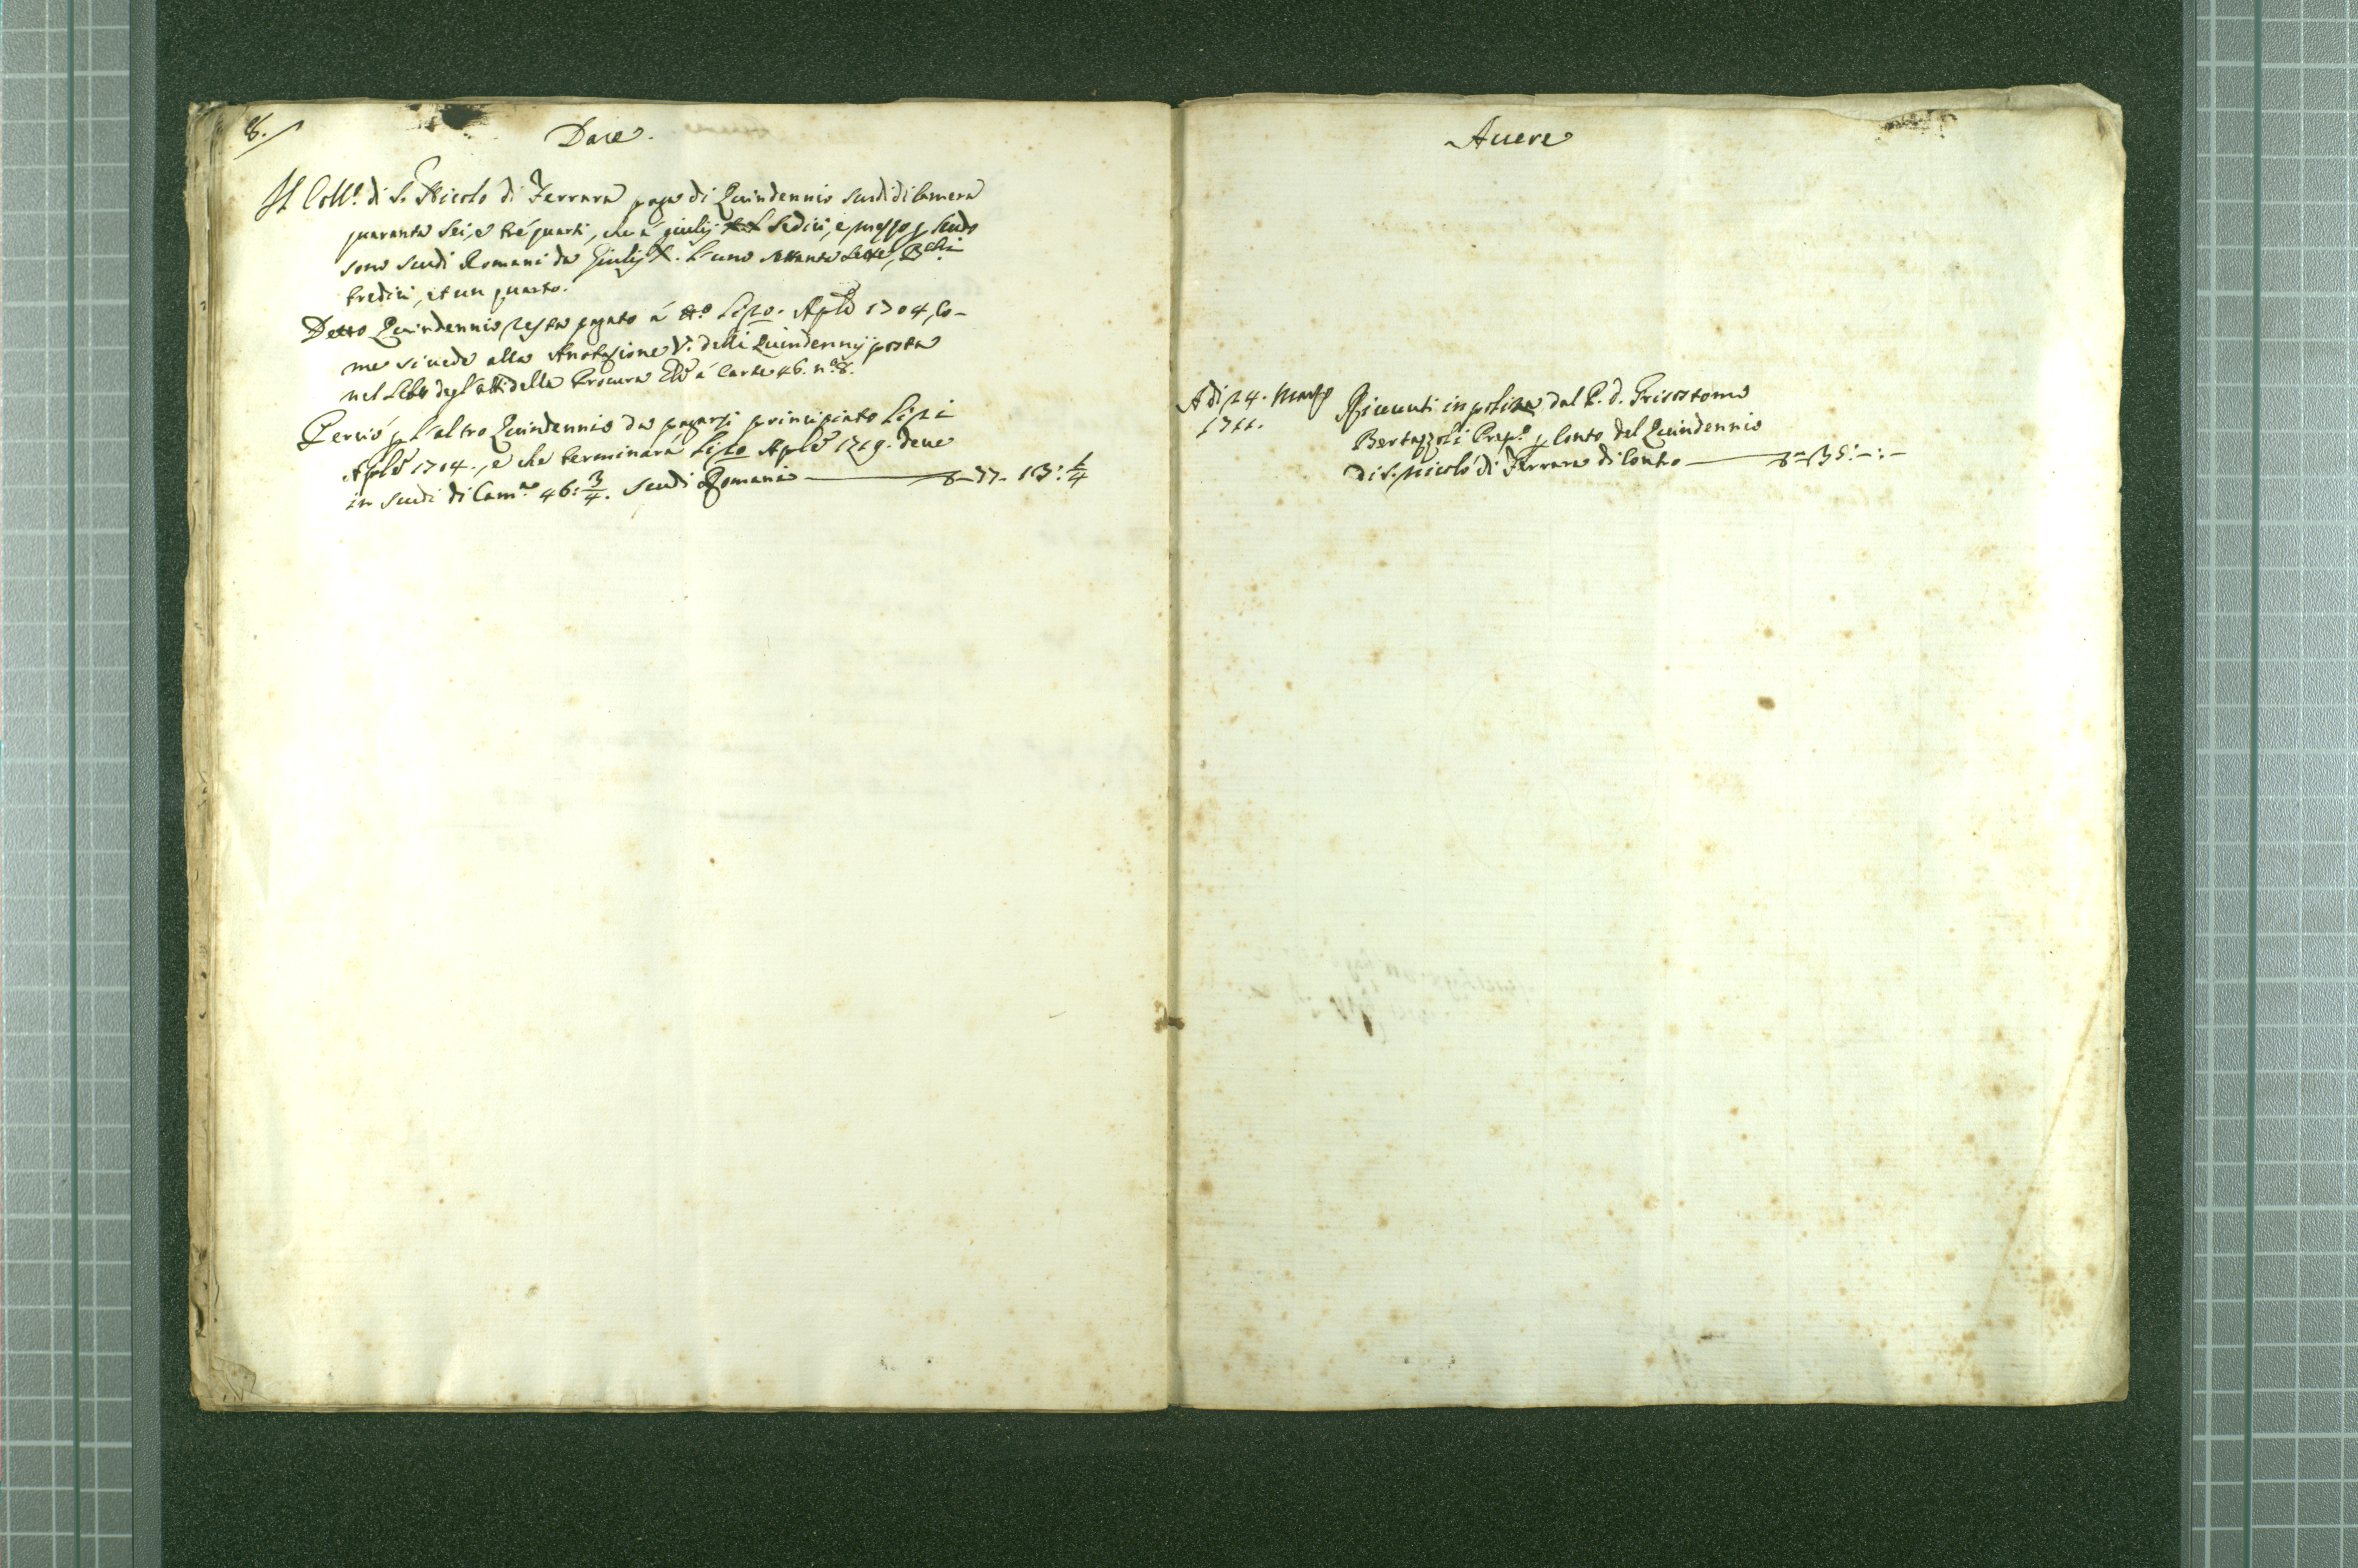 8.
Dare.
Il Coll.º di S. Nicolo di Ferrara paga di Quindennio scudi di Camera
quaranta sei, e tré quarti, che á giulij sedici, e mezzo p scudo
sono scudi Romani da Giulij X. l'uno settanta sette, B.chi
tredici, et un quarto.
Detto Quindennio resta pagato á tt.º li 20. Aple 1704, co-
me si uede alla Anotazione V. delli Quindennij posta
nel Libro degl'atti della Procura á Carte 46. n.º 8.
Perció p l'altro Quindennio da pagarsi principiato li 21
Aple 1704., e che terminará li 20 Aple 1719. deue
in scudi di Cam.ra 46: 3/4. scudi Romani — 77 - 13: 1/4
Auere
A di 24. Marzo
1711.
Riceuuti in poliza dal P. d. Grisostomo
Bertazzoli Prep.º p Conto del Quindennio
di S. Nicoló di Ferrara di contro — 35: – : –